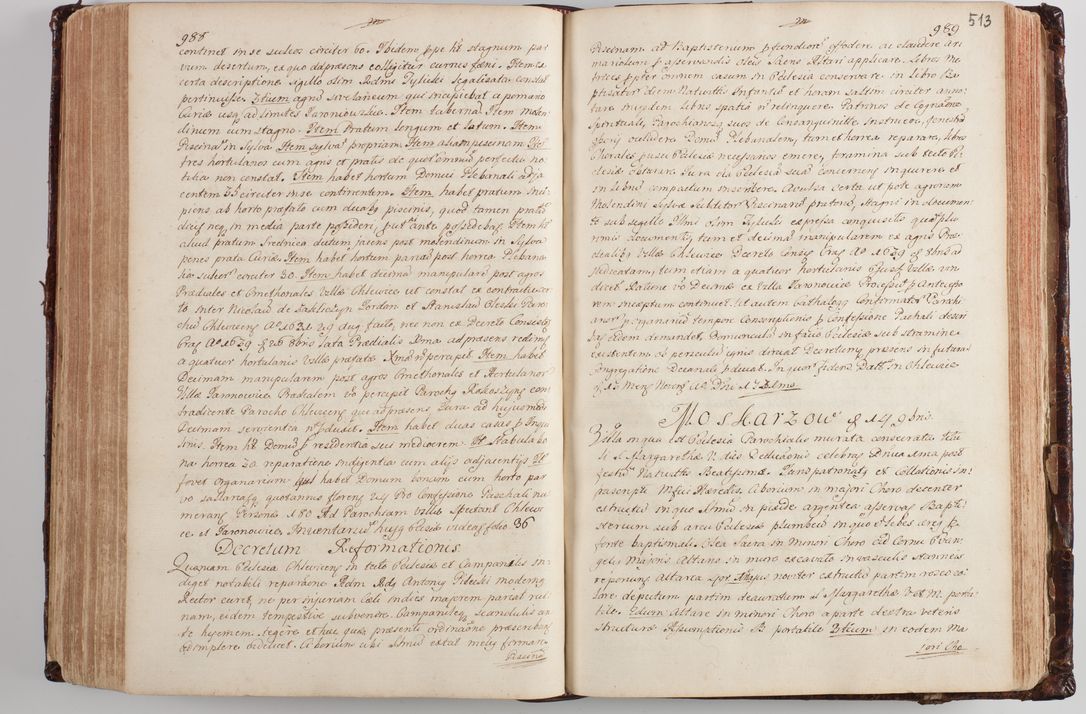 988
continet in se sulcos circiter 60. Ibidem ppe he stagnum par
vum desertum, ex quo ad præsens colligitur currus fæni. Item ex
certa descriptione sigillo olim Rdmi Tylicki legalisata constat
pertinuisse. 3tium agrum sive laneum qui incipiebat a pomario
Curiæ usq ad limites Jaronioviens. Item taberna. Item molen
dinum cum stagno. Item Pratum longum et latum. Item
Piscina in Sylva. Item sylva propriam. Item aliam piscinam. Item
tres hortulanos cum agris et pratis de quor omniu perfectu no
titia non constat. Item habet hortum Domui Plebanali adja
centem 35 circiter in se continentem. Item habet pratum inci
piens ab horto præfato cum duabq piscinis, quod tamen
in media parte possideri, put ante possidebaq. Item he
aliud pratum Srednica dictum jacens post molendinum in Sylva
penes prata Curiæ. Item habet hortum parvu post horrea Plebana
lia sulcor circiter 30. Item habet decima manipulare post agros
Prædiales et Cmethonales Villæ Chlewice ut constat ex contractu cer
to inter Nicolau de Zakliczyn Jordon et Stanislau Olesko Paro
chu Chlevicens Ao 1631 29 Aug facto, nec non ex Decreto Consistorij
Crac Ao 1639 d 26 8bris lata. Prædialis Xma ad præsens redimitur
a quatuor hortulanis Villæ præfatæ Xma percipit. Item habet
Decimam manipularem post agros Cmethonales et Hortulanor
Villæ Jaronowice Badealem vo percipit Parochq Rokoszyns con
tradicente Parocho Chlevicens qui ad præsens Jura ad hujusmodi
Decimam servientia producit. Item habet duas casas p Inqui
linis. Item he Domu p residentia sui mediocrem. It Stabula bo
na horrea 30. reparatione indigentia cum alijs adjacentijs. It
fovet organarium qui habet Domum bonum cum horto par
vo sallariaq. quotannus florens 24. Pro Confessione Paschali nu
merans Personæ 180. Ad Parochiam Villæ Spectant Chlewi
ce et Jaronowice. Inventariu hujq Eclesiæ videaq folio 36
Decretum Reformationis
Quoniam Eclesia Chlevicens in tecto Eclesiæ et Campanilis in
diget notabili reparaone Rdm Rdq Antonq Pitelski modernq
Rector curet, ne per injuriam Cœli indies majorem pariat rui
nam, eidem tempestive subvenire. Campanileq. Scandulis an
te hyemem tegere et hæc quæ præsenti ordinaone præscribunt
adimplere videlicet. Ciborium ubi Ssmu extat mely forman
Piscina

989
513
Piscinam ad Baptisterium pfundiore effodere ac claudere ar
mariolum p asservandis Oleis Sacris Altari applicare. Libros Me
trices ppter omnem casum in Eclesia conservare in Libro Ba
ptisator diem Nativitis Infantis et horam saltim circiter anno
tare in ejsdem Libris spatia relinquere. Patrinos de Cognaone
Spirituali, Parochianos suos de Consanguinitte Instruere, fenestra
claudere Domu Plebanalem, tum et horrea reparare, Libros
Chorales pusu Eclesiæ necessarios emere, foramina sub tecto Ec
clesiæ obturare Jura ois Eclesiæ suæ concernens inquirere et
in Libru compactum inscribere. Avulsa certa ut pote agrorum
Molendini Sylvæ Subditor Piscinaru pratoru, Stagni in documen
to sub sigillo Illmi olim Tylicki expressa conquisito
nomis documento, tum et decima manipularem ex agris Præ
dealibq Villæ Chlewice Decreto Consis Crac Ao 1639 d 8bris ad
judicatam, tum etiam a quatuor hortulanis Villæ vin
dicet Ratione vo Decimæ ex Villa Jaronowice Processu p Anteceso
rem inceptum continuet. Ad autem Cathalogq Confirmator Parochi
anor p organariu tempore Conscriptionis p Confessione Paschali descri
baq eidem demandet. Domunculæ in favio Eclesiæ sub stramine
existentem ob periculu ignis diruat Decretumq præsens in futura
Congregatione Decanali pducat. In quor fidem. Datt in Chlewice
d 15 Mens Novens Ao Dni 1748mo

Moskarzow d 14 9bris.
Villa in qua est Eclesia Parochialis murata consecrata titu
li S. Margarethæ V. dies Dedicaonis celebraq Dnica 1ma post
festu Nativittis Beatissimæ. Jus patronatq et Collationis in
præsenti Mfci Hæredis. Ciborium in majori Choro decenter
extructu in quo Ssmu in pixide argentea asservaq. Bapti
sterium sub arcu Eclesiæ plumbeu in quo e lebes æreq p
fonte baptismali. Olea Sacra in Minori Choro ad Cornu Evan
gelij Majoris Altaris in muro excavato in vasculis stanneis
reponunq. Altarea qor Majus noviter extructu partim roseo co
lore depictum partim deauratum S. Margarethæ V. et M. porta
tile. 2dum Altare in minori Choro a parte dextra veteris
structuræ Assumptionis B. portatile. 3tium in eodem Ma
jori Cho